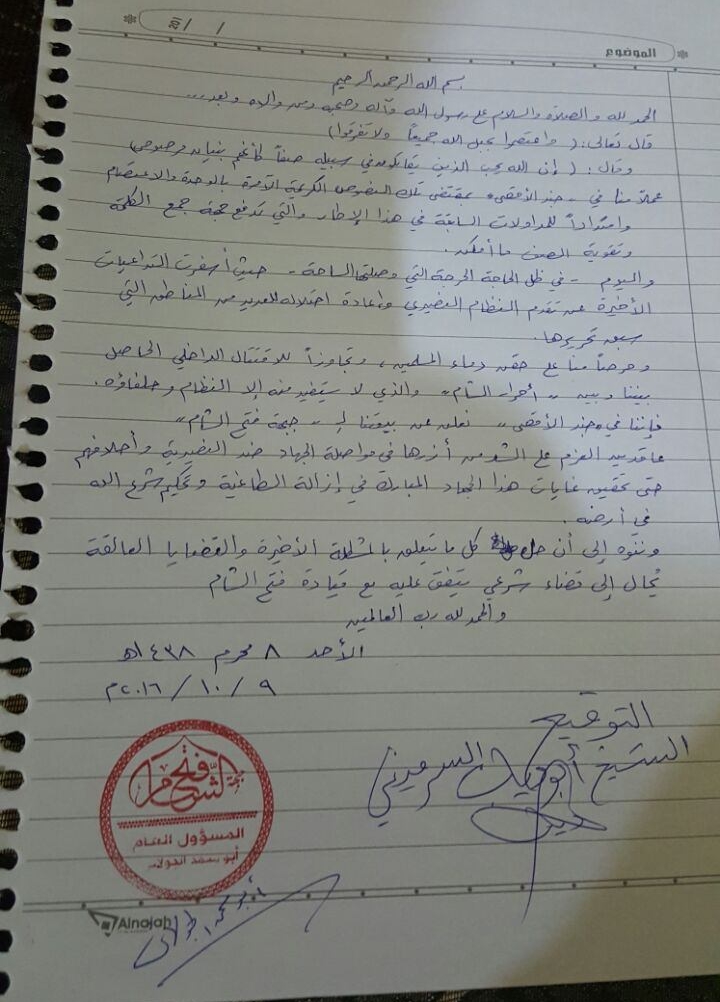 201 / /
الموضوع
بسم الله الرحمن الرحيم
الحمد لله والصلاة والسلام على رسول الله وآله وصحبه ومن والاه وبعد...
قال تعالى: ( واعتصموا بحبل الله جميعاً ولا تفرقوا )
وقال: ( إن الله يحب الذين يقاتلون في سبيله صفاً كأنهم بنيان مرصوص)
عملاً منا في - جند الأقصى - بمقتضى تلك النصوص الكريمة الآمرة بالوحدة والاعتصام
وامتداداً للمداولات السابقة في هذا الإطار والتي تدفع جهة جمع الكلمة
وتقوية الصف ما أمكن.
واليوم - في ظل الحاجة الحرجة التي وصلتها الساحة - حيث أسفرت التداعيات
الأخيرة عن تقدم النظام النصيري وإعادة احتلاله للعديد من المناطق التي
سبق تحريرها.
وحرصاً منا على حقن دماء المسلمين، وتجاوزاً للاقتتال الداخلي الحاصل
بيننا وبين "أحرار الشام" والذي لا يستفيد منه إلا النظام وحلفاؤه.
فإننا في "جند الأقصى" نعلن عن بيعتنا لـ "جبهة فتح الشام"
عاقدين العزم على الشد من أزرها في مواصلة الجهاد ضد النصيرية وأحلافهم
حتى تحقيق غايات هذا الجهاد المبارك في إزالة الطاغية وتحكيم شرع الله
في أرضه.
وننوه إلى أن حل كل ما يتعلق بالمشكلة الأخيرة والقضايا العالقة
يُحال إلى قضاء شرعي يتفق عليه مع قيادة فتح الشام
والحمد لله رب العالمين
الأحد ٨ محرم ١٤٣٨هـ
٩ / ١٠ / ٢٠١٦م
التوقيع
الشيخ أبو دياب السرميني
فتح الشام
المسؤول العام
أبو محمد الجولاني
أبو محمد الجولاني
Alnajah